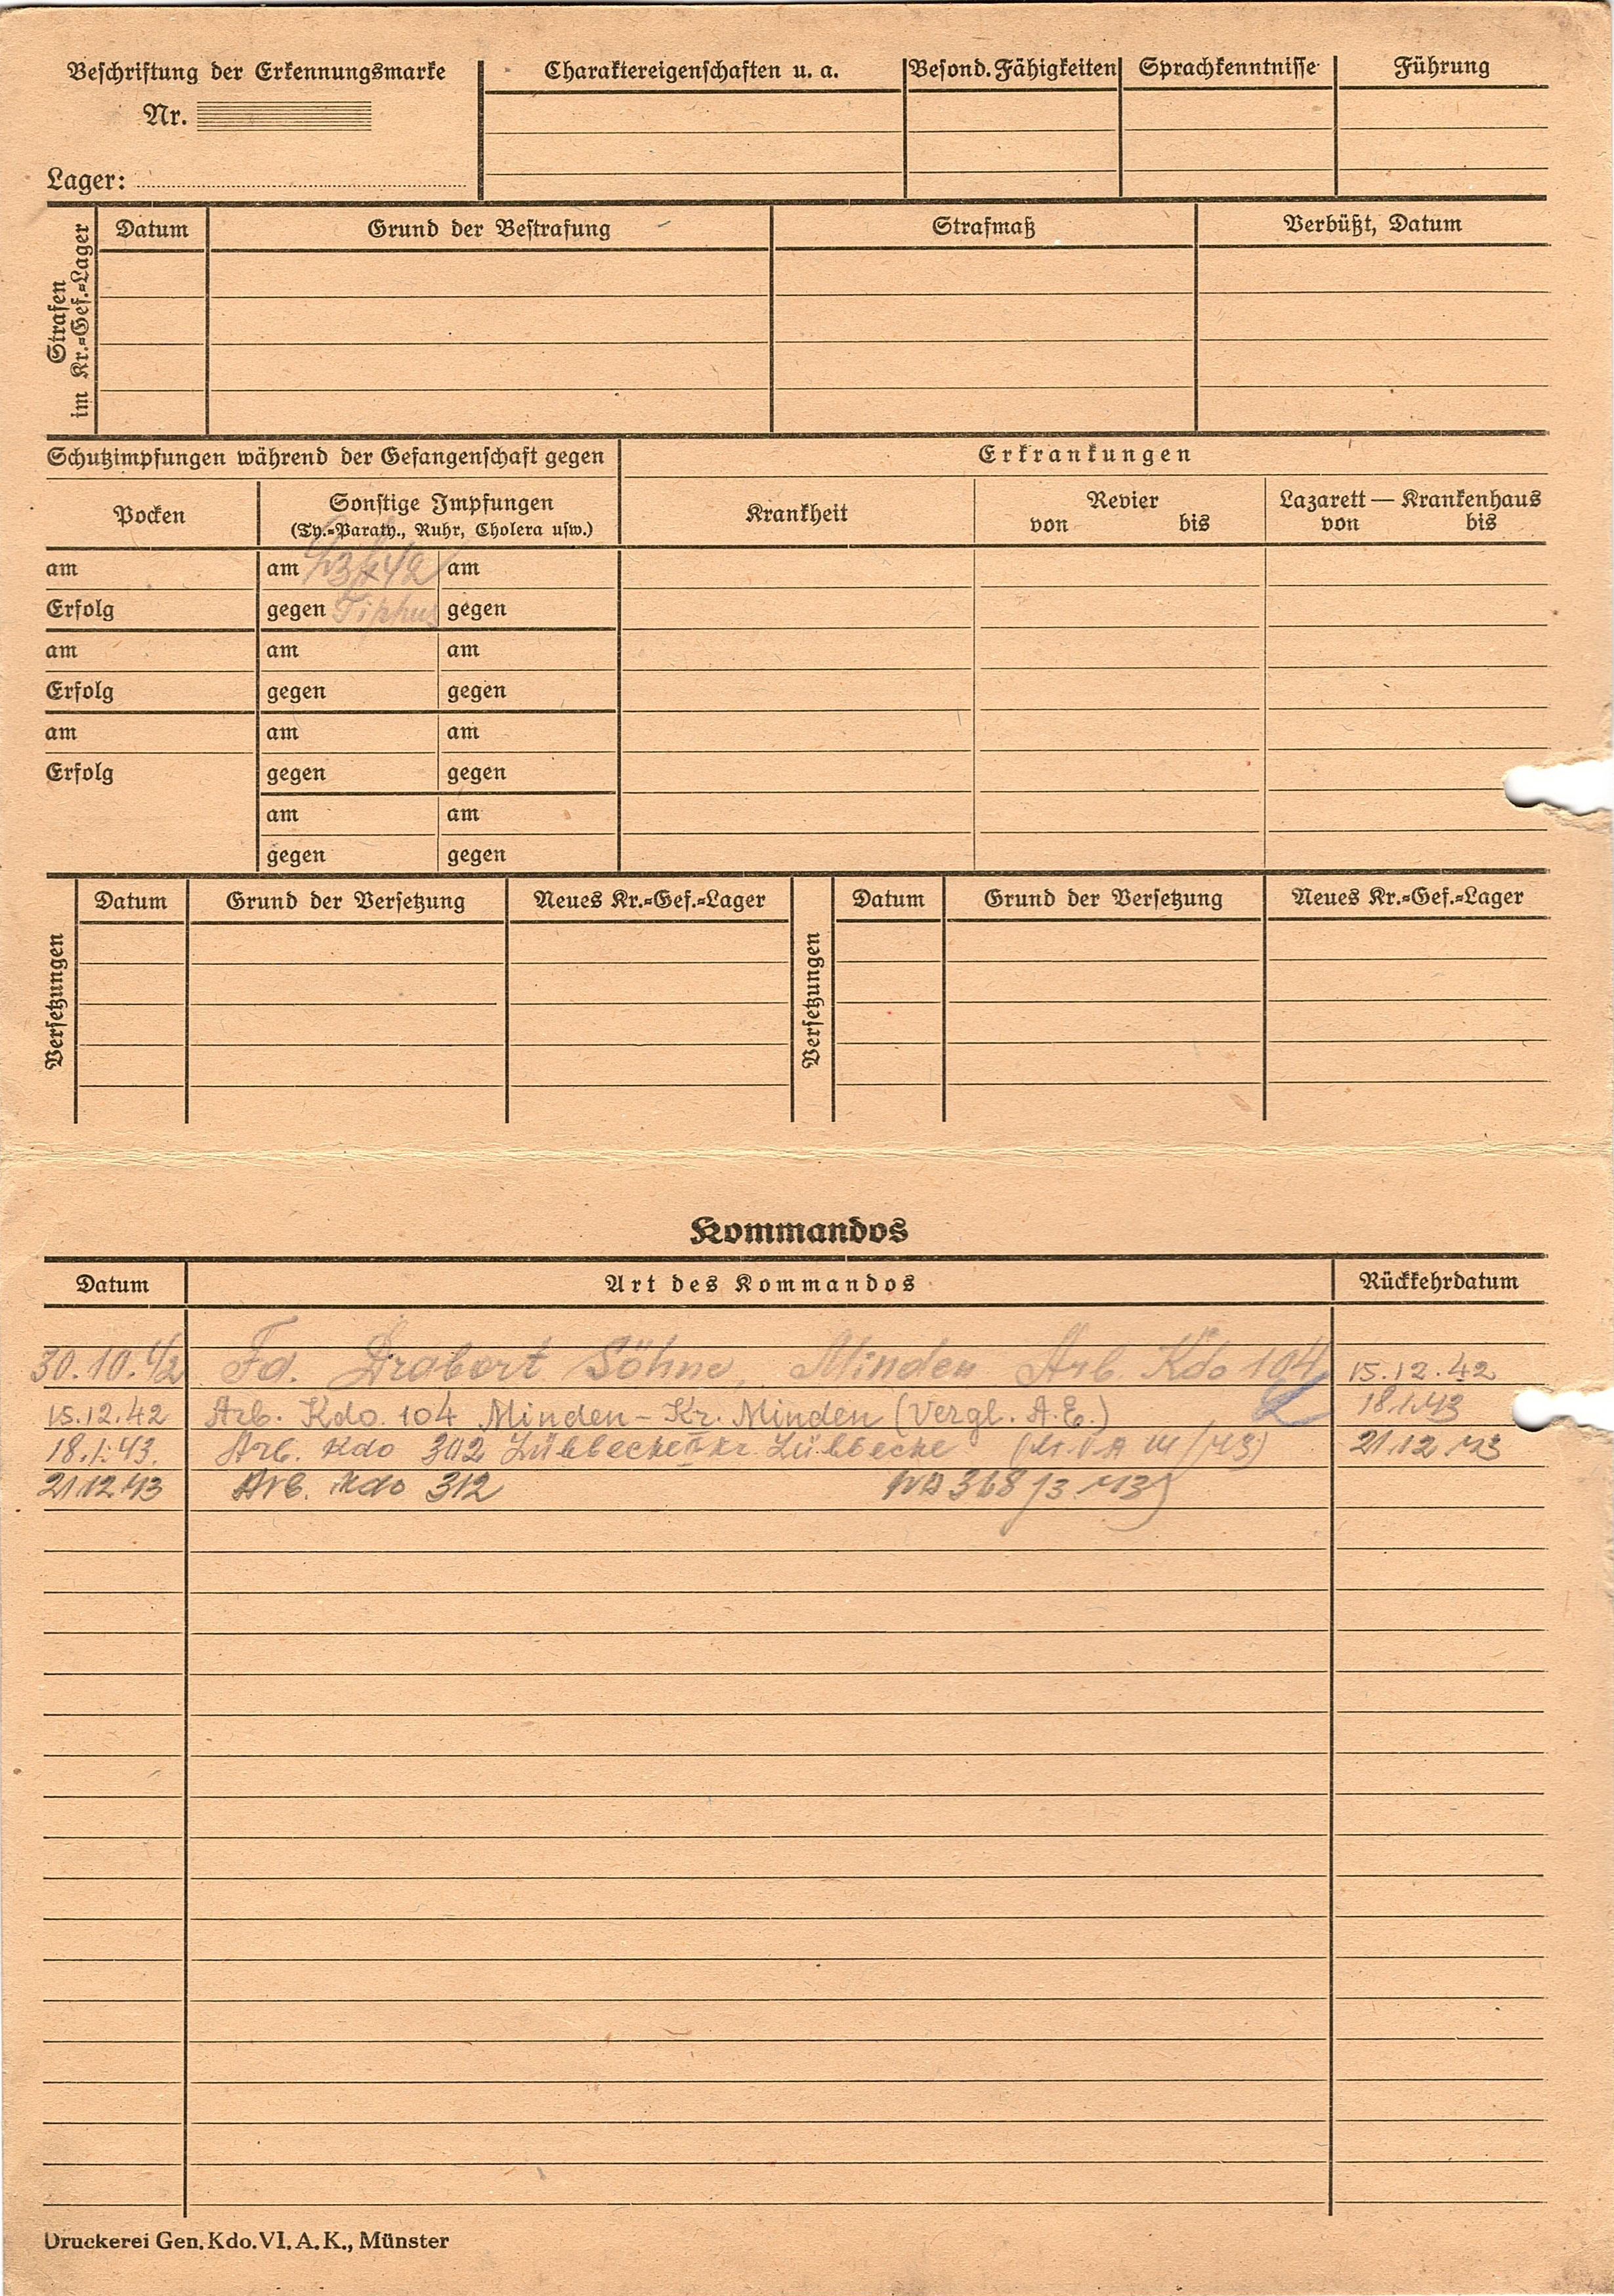 Beschriftung der Erkennungsmarke
Nr.
Lager:
Charaktereigenschaften u. a.
Besond. Fähigkeiten
Sprachkenntnisse
Führung
Strafen
im Kr.=Gef.=Lager
Datum
Grund der Bestrafung
Strafmaß
Verbüßt, Datum
Schutzimpfungen während der Gefangenschaft gegen
Erkrankungen
Pocken
Sonstige Impfungen
(Ty.=Paraty., Ruhr, Cholera usw.)
Krankheit
Revier
von bis
Lazarett — Krankenhaus
von bis
am am am
Erfolg gegen Tiphus gegen
am am am
Erfolg gegen gegen
am am am
Erfolg gegen gegen
am am
gegen gegen
Versetzungen
Datum
Grund der Versetzung
Neues Kr.=Gef.=Lager
Versetzungen
Datum
Grund der Versetzung
Neues Kr.=Gef.=Lager
Kommandos
Datum
Art des Kommandos
Rückkehrdatum
30.10.42 Fa. Drabert Söhne, Minden Arb. Kdo 104 15.12.42
15.12.42 Arb. Kdo. 104 Minden – Kr. Minden (Vergl. A.E.) 18.1.43
18.1.43. Arb. Kdo 302 Lübbecke II Kr. Lübbecke 21.12.43
21.12.43 Arb. Kdo 312
Druckerei Gen. Kdo. VI. A. K., Münster